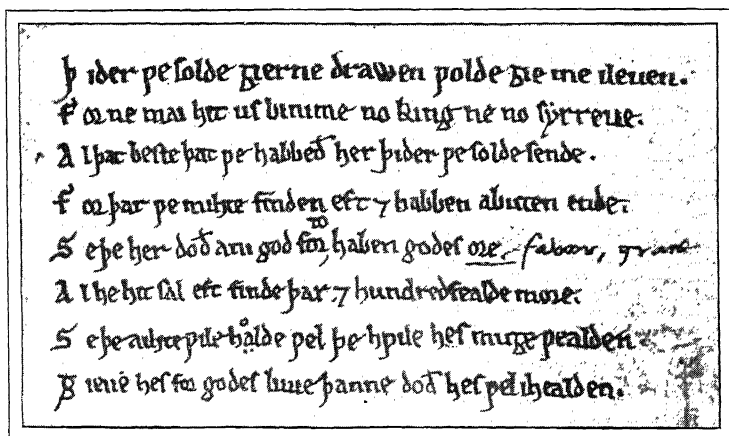 Þ ider ƿe ſolde gierne drawen ƿolde gie me ileuen.
F or ne mai hit uſ binime no king ne no ſẏrreue.
A l þat beſte þat ƿe habbeð her þider ƿe ſolde ſende.
F or þar ƿe mihte finden eft ⁊ habben abuten ende.
S e þe her doð ani god for to haben godeſ ore. favour, grace
A l he hit ſal eft finde þar ⁊ hundredfealde more.
S e þe aihte ƿile holde ƿel þe hƿile heſ muge ƿealden.
G ieuē heſ for godeſ luue þanne doð heſ ƿel ihealden.